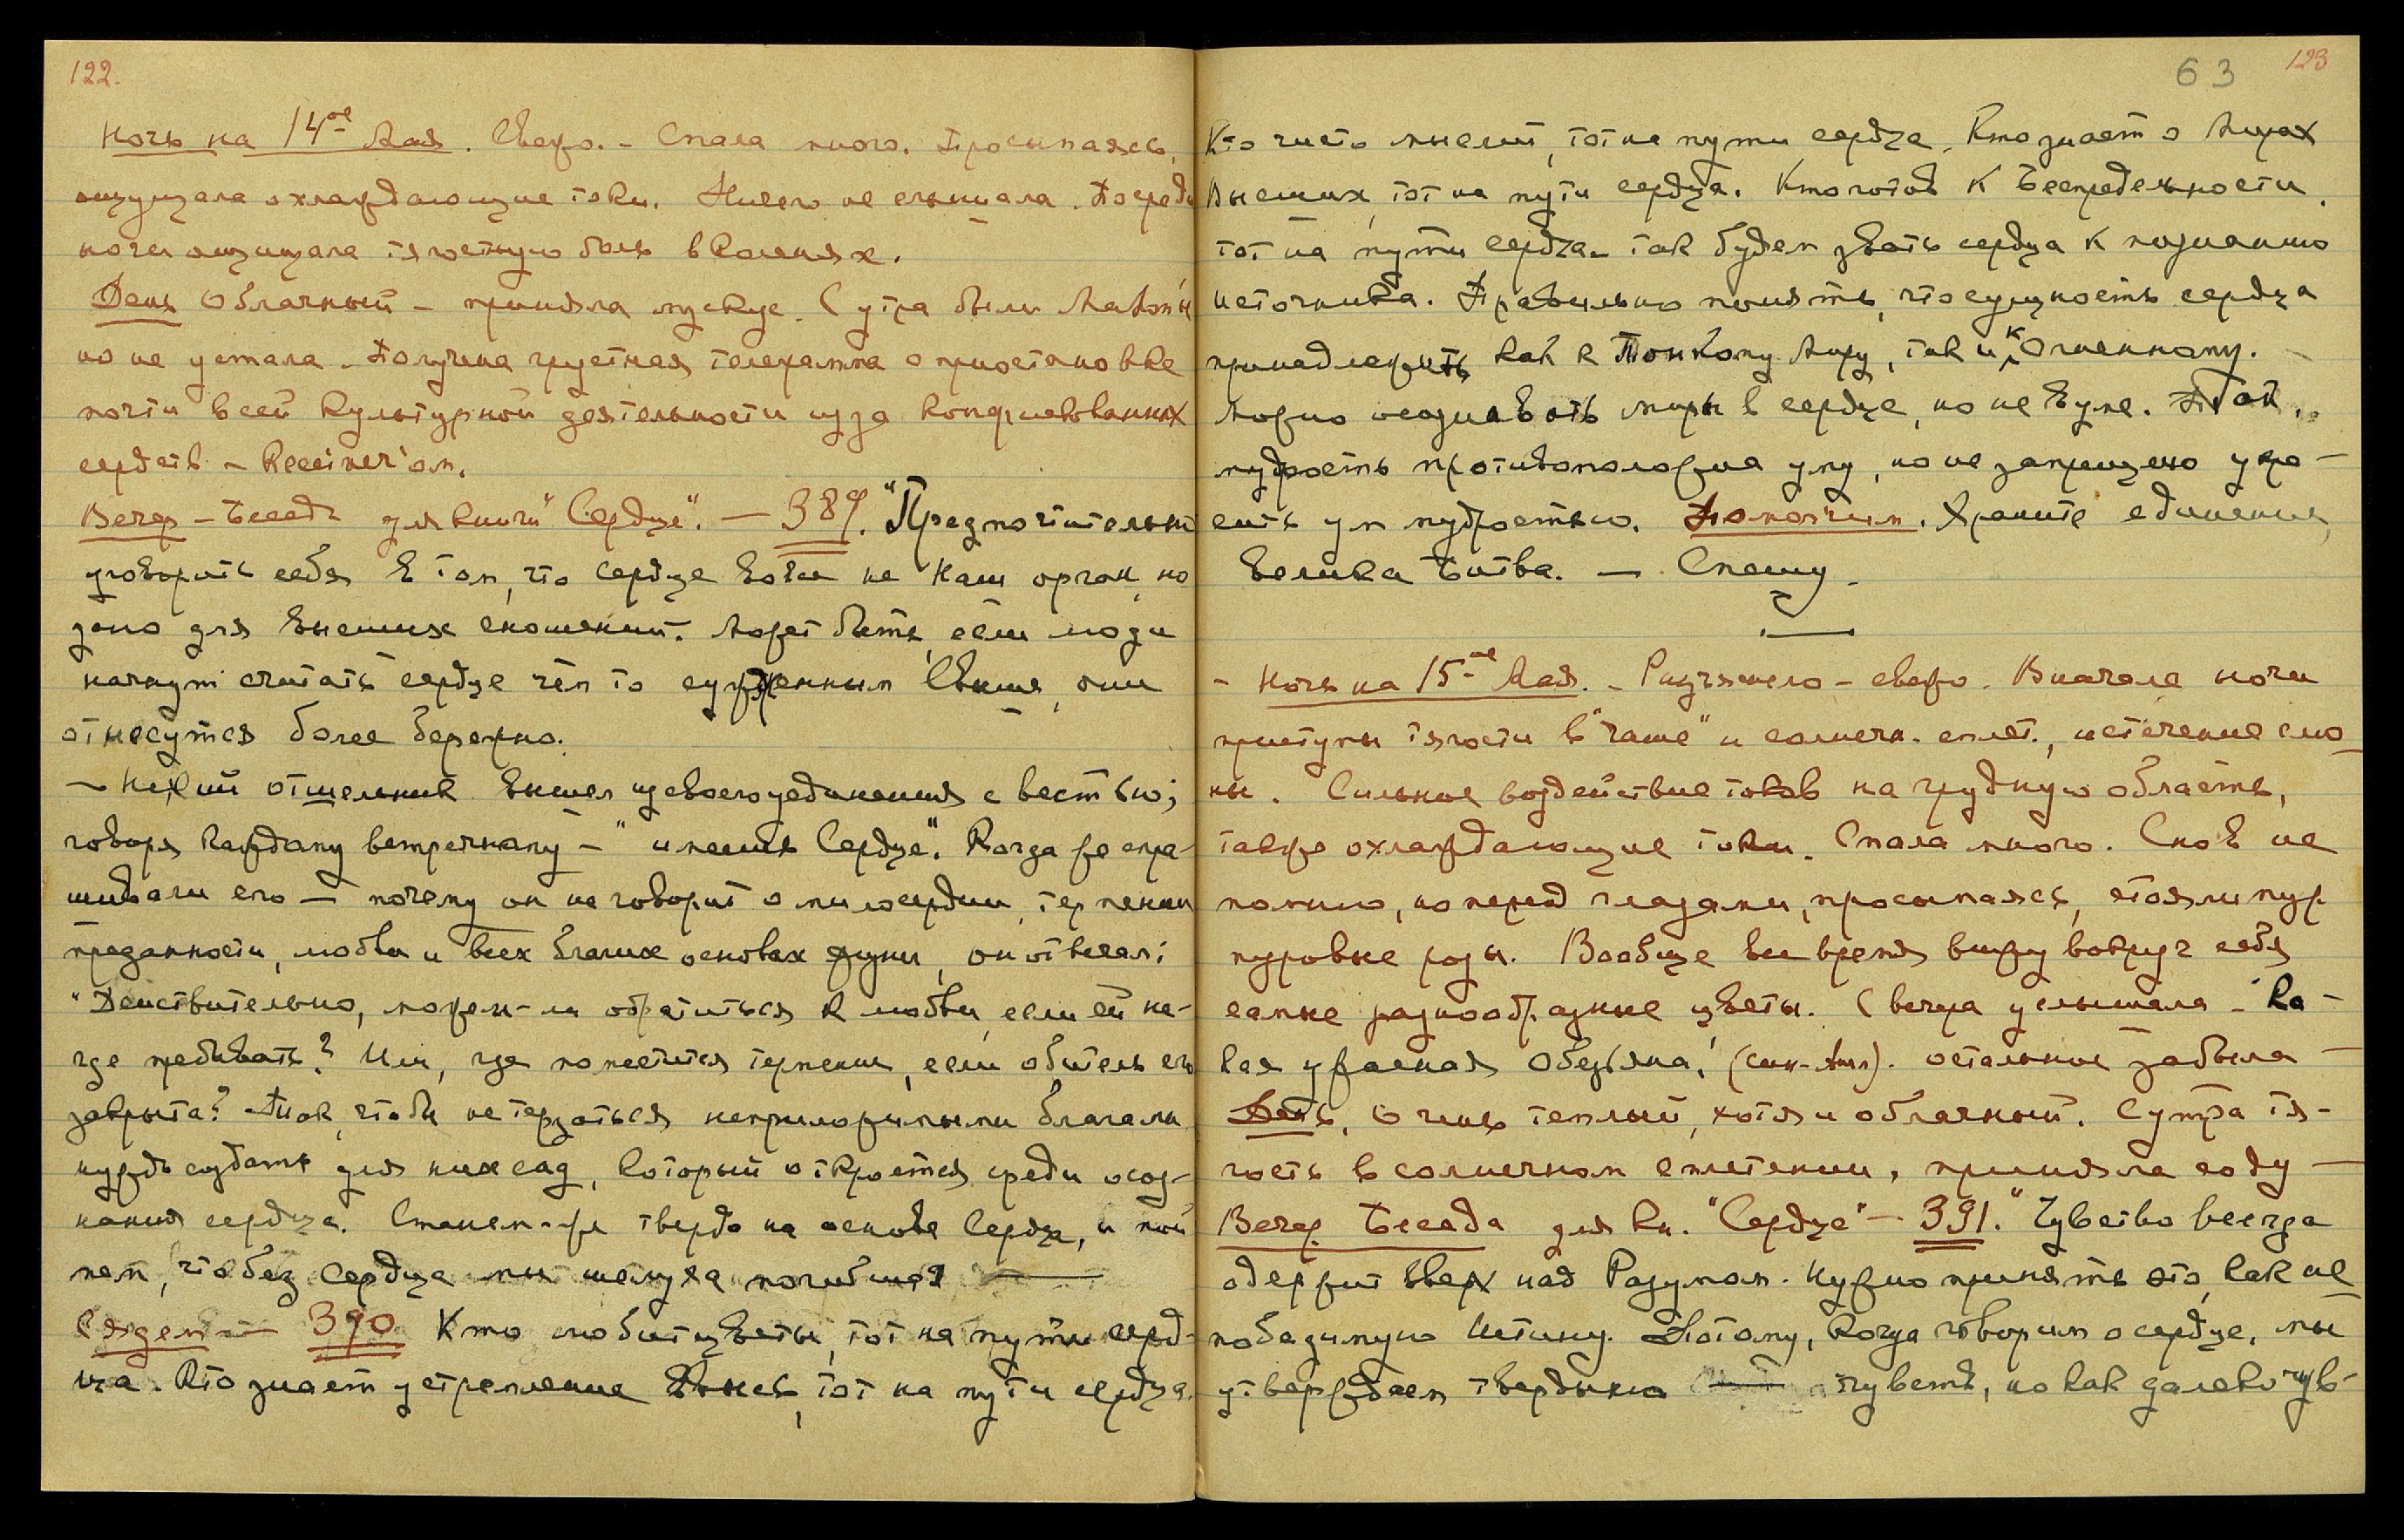 122.
Ночь на 14ое Мая. Свежо. - Спала много. Просыпаясь,
ощущала охлаждающие токи. Ничего не слышала. Посреди
ночи ощущала тягостную боль в коленях.
День Облачный - приняла мускус. С утра были
но не устала. Получена грустная телеграмма о приостановке
почти всей культурной деятельности из за конфискованных
средств - Receiver'ом.
Вечер - Беседа для книги "Сердце". - 389. "Предпочтительно
уговорить себя в том, что сердце вовсе не наш орган, но
дано для высших сношений. Может быть, если люди
начнут считать сердце чем то сужденным Свыше, они
отнесутся более бережно.
- Некий отшельник вышел из своего уединения с вестью,
говоря каждому встречному - "имеешь Сердце". Когда же спра-
шивали его - почему он не говорит о милосердии, терпении
преданности, любви и всех благих основах жизни, он отвечал:
"Действительно, можем-ли обратиться к любви, если ей не-
где пребывать? Или, где поместится терпение, если обитель его
закрыта? Так, чтобы не терзаться неприложимыми благами,
нужно создать для них сад, который откроется среди осоз-
нания сердца. Станем-же твердо на основе Сердца, и пой
мем, что без Сердца мы шелуха погибшая —
Сядем — 390 Кто любит цветы, тот на пути серд-
ца. Кто знает устремление ввысь, тот на пути сердца.
63 123
Кто чисто мыслит, тот на пути сердца. Кто знает о Мирах
Высших, тот на пути сердца. Кто готов к Беспредельности,
тот на пути сердца. Так будем звать сердца к познанию
источника. Правильно понять, что сущность сердца
принадлежить как к Тонкому Миру, так и к Огненному.
Можно осознавать миры в сердце, но не в уме. Так,
мудрость противоположна уму, но не запрещено укра-
сить ум мудростью. Помогчим. Храните единение,
Велика Битва. — Спешу.
- Ночь на 15ое Мая. - свежо. Вначале ночи
приступы тягости в "чаше" и солнечн. сплет., истечение слю-
ны. Сильное воздействие токов на грудную область,
также охлаждающие токи. Спала много. Снов не
помню, но перед глазами, просыпаясь, стояли пур
пуровые розы. Вообще все время вижу вокруг себя
самые разнообразные цветы. С вечера услышала - "Ка-
кая ужасная Обезьяна," остальное забыла —
День, Очень теплый, хотя и облачный. С утра тя-
гость в солнечном сплетении, приняла соду —
Вечер. Беседа для кн. "Сердце" - 391. "Чувство всегда
одержит вверх над Разумом. Нужно принять это, как не
победимую Истину. Потому, когда говорим о сердце, мы
утверждаем твердыню чувств, но как далеко чув-